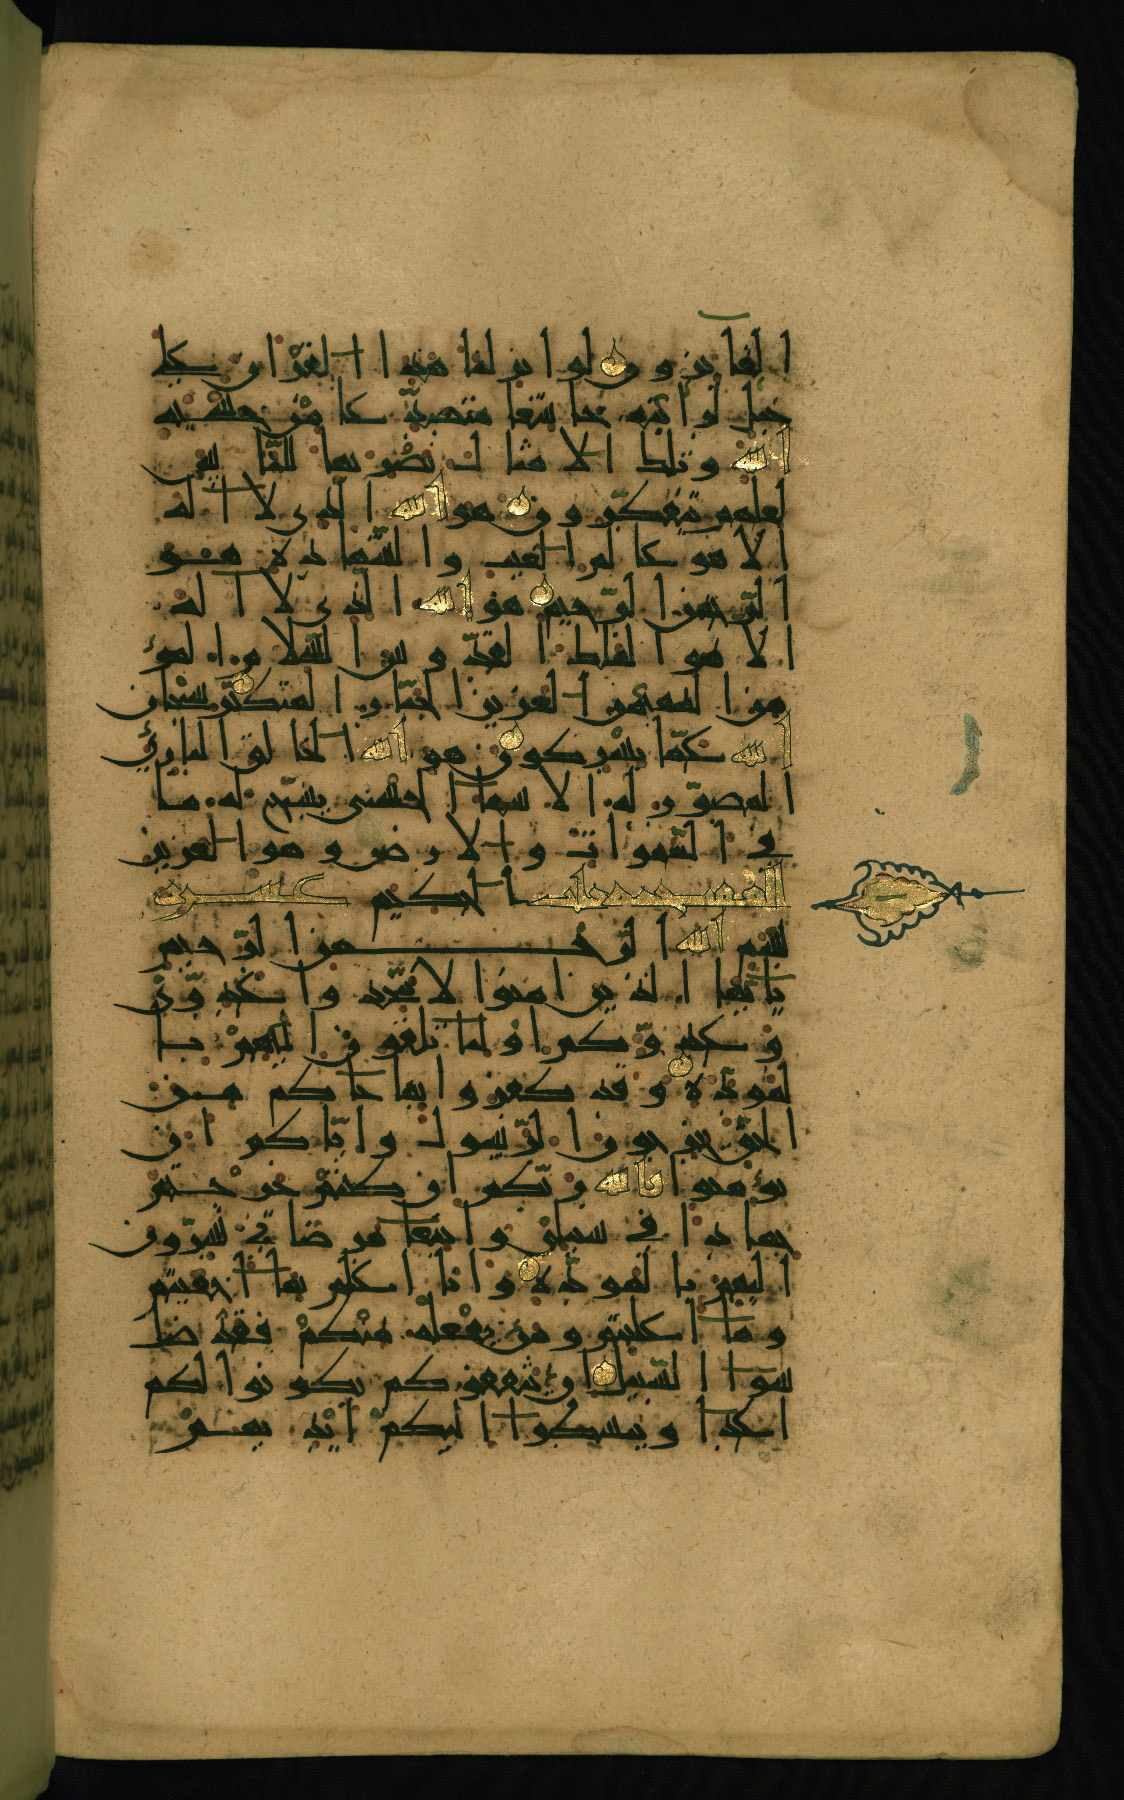 الفآئزون لو انزلنا هذا القران على
جبل لرأيته خاشعا متصدعا من خشية
الله وتلك الامثال نضربها للناس
لعلهم يتفكرون هو الله الذى لا اله
الا هو عالم الغيب والشهادة هو
الرحمن الرحيم هو الله الذى لا اله
الا هو الملك القدوس السلام المؤ
من المهيمن العزيز الجبار المتكبر سبحان
الله عما يشركون هو الله الخالق البارئ
المصور له الاسما الحسنى يسبح له ما
في السموات والارض وهو العزيز
الحكيم
بسم الله الرحمن الرحيم
يا ايها الذين امنوا لا تتخذوا عدوي
وعدوكم اوليا تلقون اليهم با
لمودة وقد كفروا بما جاكم من
الحق يخرجون الرسول واياكم ان
تؤمنوا بالله ربكم ان كنتم خرجتم
جهادا في سبيلى وابتغا مرضاتي تسرون
اليهم بالمودة وانا اعلم بما اخفيتم
وما اعلنتم ومن يفعله منكم فقد ضل
سوا السبيل ان يثقفوكم يكونوا لكم
اعدا ويبسطوا اليكم ايديهم